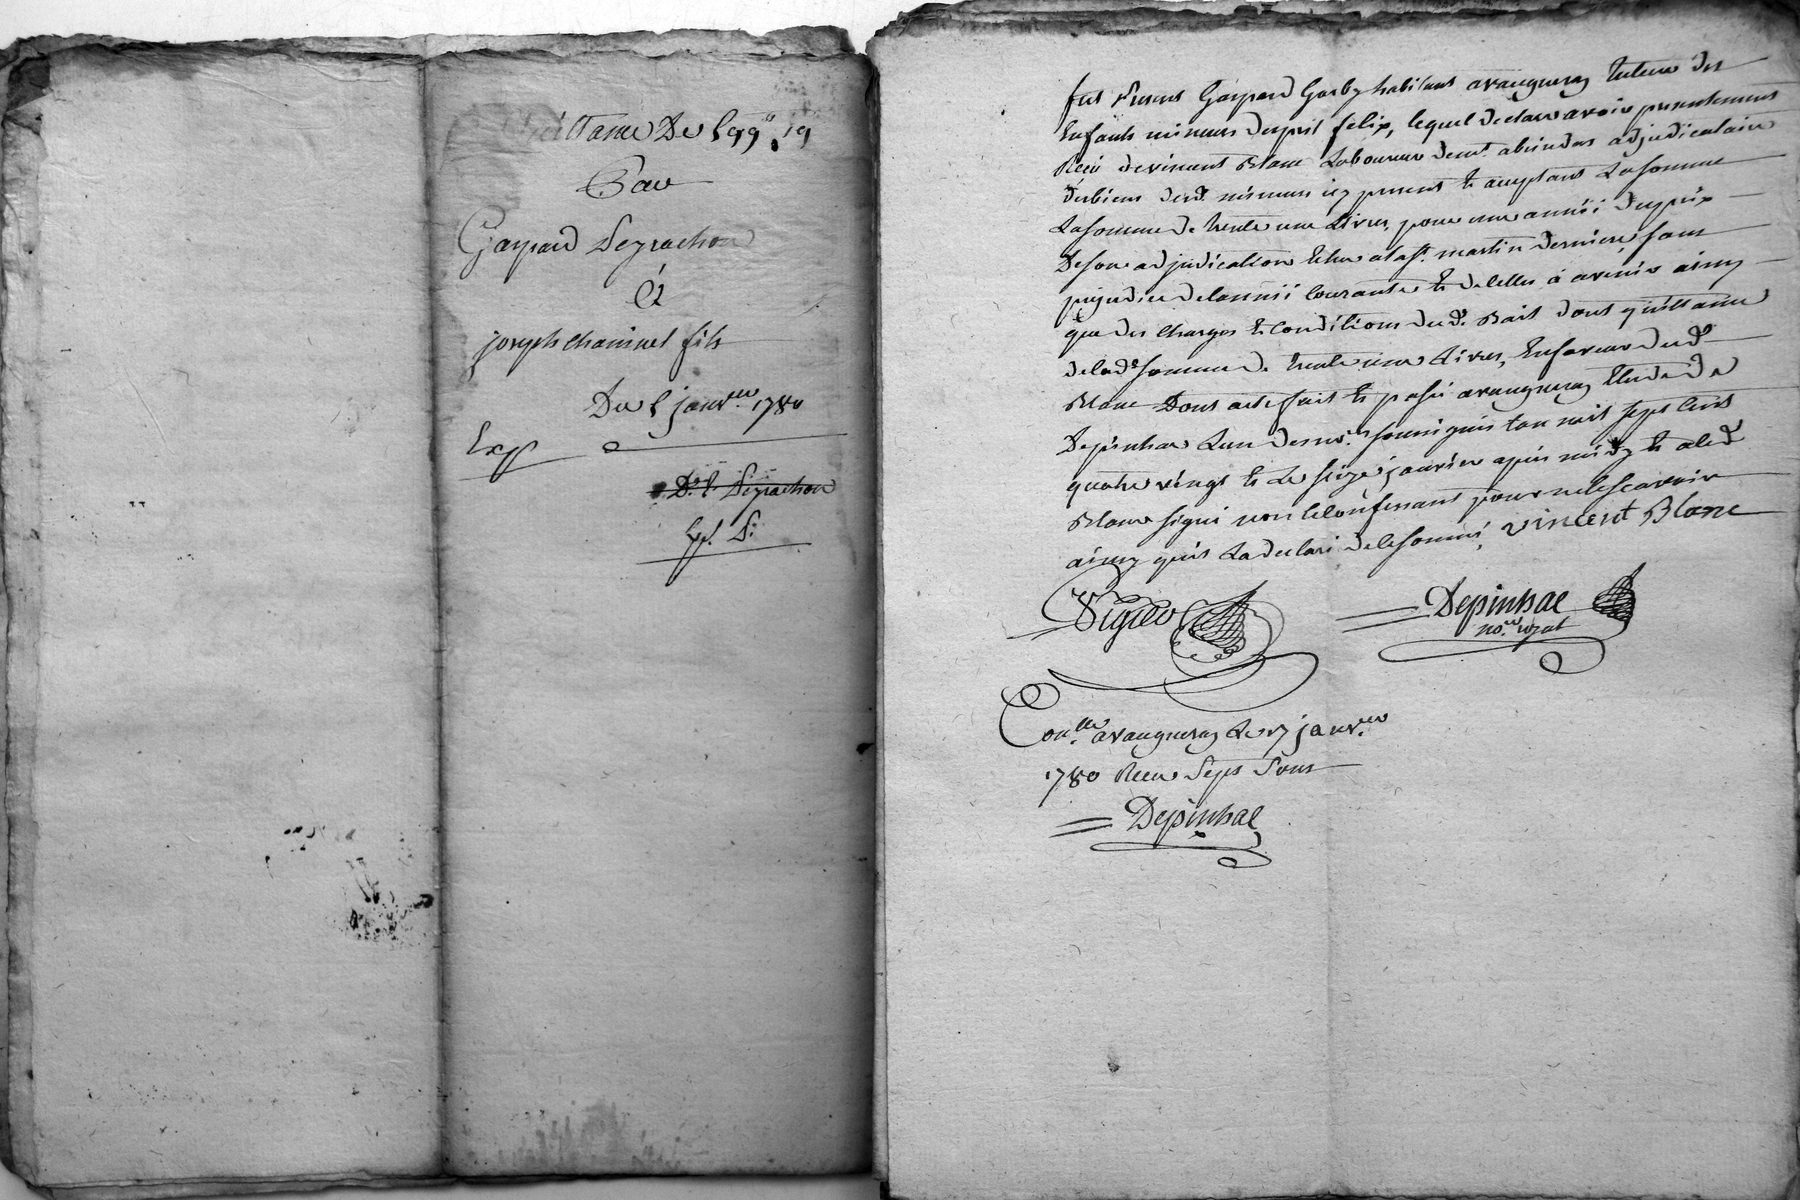 quittance De 599 ₶ 19
Par
Gaspard Seyrachon
à
joseph chainnel fils
Du 5 janv.er 1780
Exp
Exp. S:
fut present Gaspard Garby habitant avaugneray tuteur des
Enfants mineurs desprit felix, lequel declare avoir presentement
Receu de vincent Blanc Laboureur demt. adjudicataire
desbiens desd. mineurs icy present & acceptant Lasomme
Lasomme de trente une Livres, pour une année duprix
Deson adjudication echue alast. martin derniere, sans
prejudice delannée courante & de celles à avenir ainsy
que des charges & conditions dud. Bail dont quittance
delade somme de trente une Livres, Enfaveur dud.
Blanc Dont acte fait & passé avaugneray Etude de
Depinhac Lun desno.rs soussignés lan mil sept cent
quatre vingt & Le seize janvier apres midy & aled.
Blanc signé non leconfessant pour nelesçavoir
ainsy quil La declaré delesommé, vincent Blanc
Depinhac
no.re royal
Con.lle avaugneray Le 17 janv.er
1780 Receu Sept Sous
Depinhac